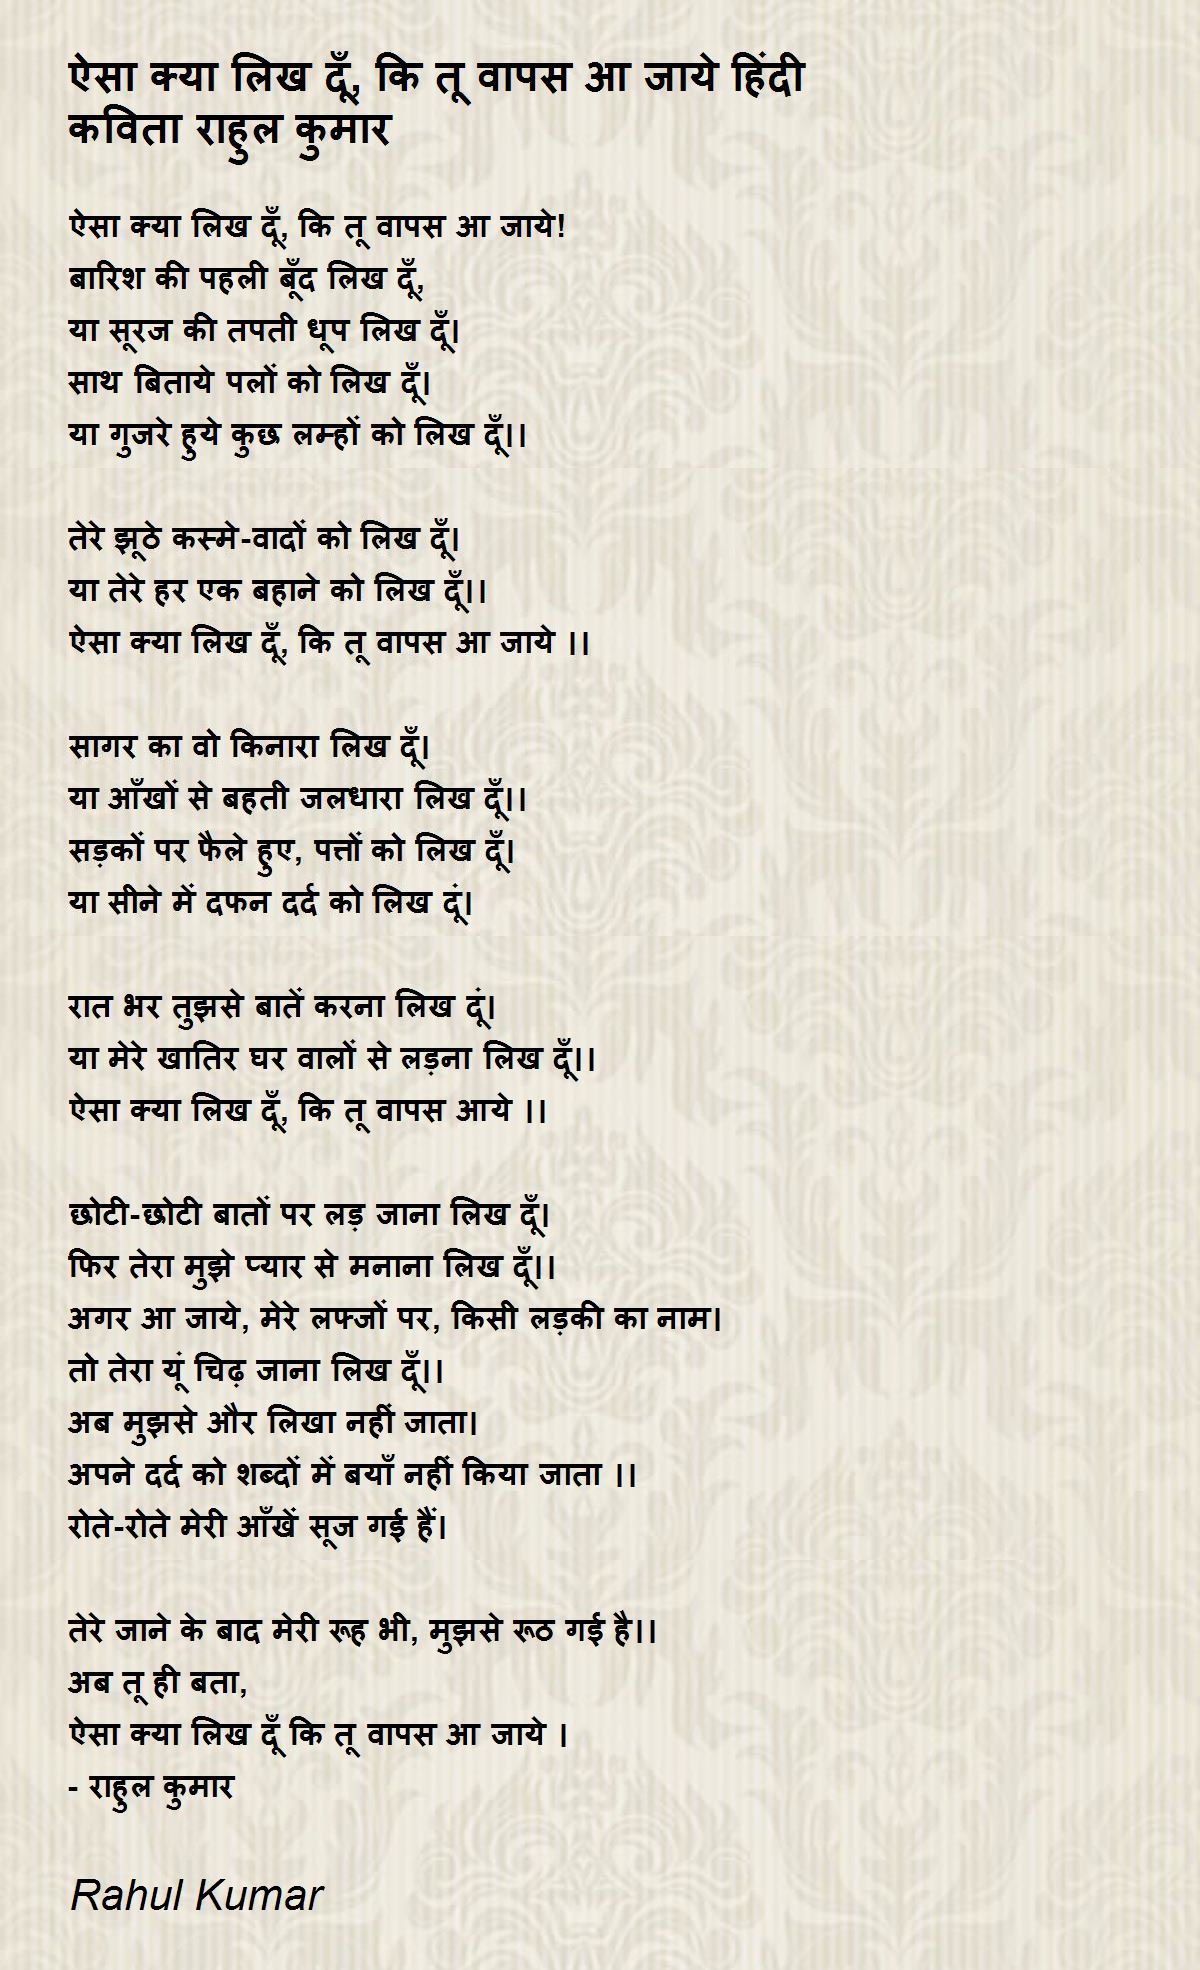 ऐसा क्या लिख दूँ, कि तू वापस आ जाये हिंदी
कविता राहुल कुमार
ऐसा क्या लिख दूँ, कि तू वापस आ जाये!
बारिश की पहली बूँद लिख दूँ,
या सूरज की तपती धूप लिख दूँ|
साथ बिताये पलों को लिख दूँ|
या गुजरे हुये कुछ लम्हों को लिख दूँ।।
तेरे झूठे कस्मे-वादों को लिख दूँ|
या तेरे हर एक बहाने को लिख दूँ।।
ऐसा क्या लिख दूँ, कि तू वापस आ जाये ।।
सागर का वो किनारा लिख दूँ|
या आँखों से बहती जलधारा लिख दूँ।।
सड़कों पर फैले हुए, पत्तों को लिख दूँ|
या सीने में दफन दर्द को लिख दूं|
रात भर तुझसे बातें करना लिख दूं|
या मेरे खातिर घर वालों से लड़ना लिख दूँ।।
ऐसा क्या लिख दूँ, कि तू वापस आये ।।
छोटी-छोटी बातों पर लड़ जाना लिख दूँ|
फिर तेरा मुझे प्यार से मनाना लिख दूँ।।
अगर आ जाये, मेरे लफ्जों पर, किसी लड़की का नाम|
तो तेरा यूं चिढ़ जाना लिख दूँ।।
अब मुझसे और लिखा नहीं जाता|
अपने दर्द को शब्दों में बयाँ नहीं किया जाता ।।
रोते-रोते मेरी आँखें सूज गई हैं|
तेरे जाने के बाद मेरी रूह भी, मुझसे रूठ गई है।।
अब तू ही बता,
ऐसा क्या लिख दूँ कि तू वापस आ जाये ।
- राहुल कुमार
Rahul Kumar